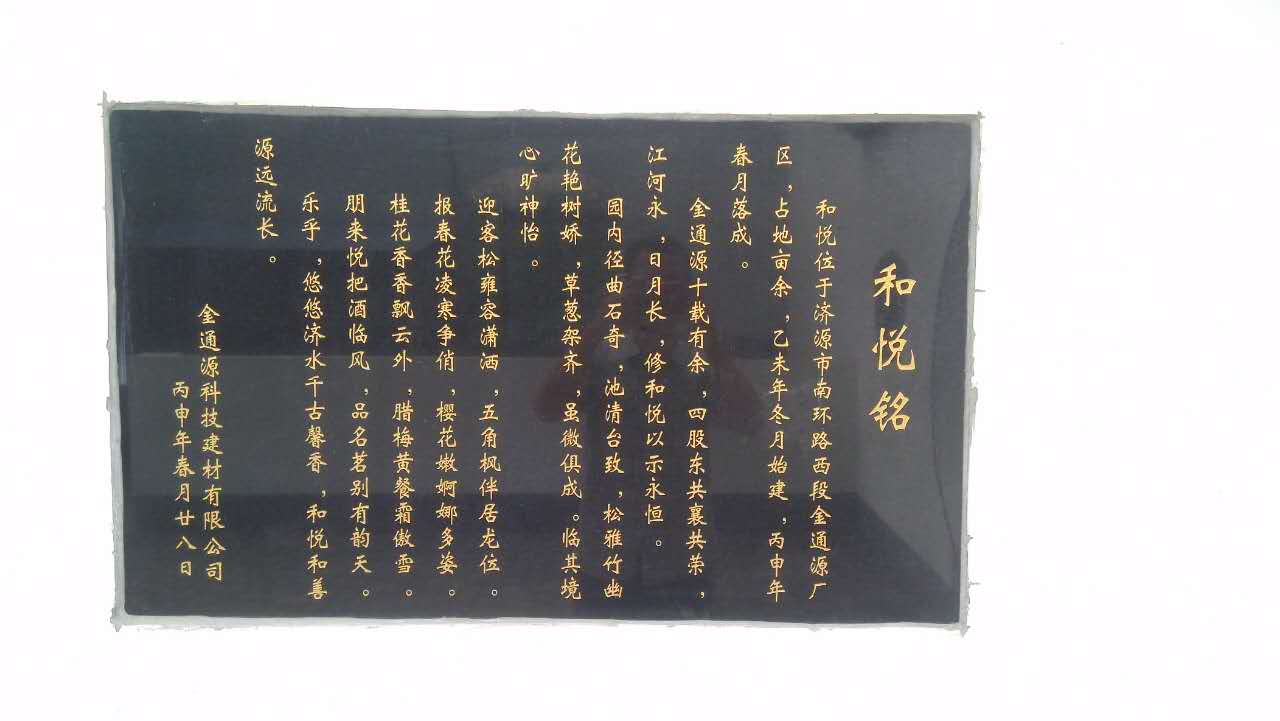 和悦铭
和悦位于济源市南环路西段金通源厂
区，占地亩余，乙未年冬月始建，丙申年
春月落成。
金通源十载有余，四股东共襄共荣，
江河永，日月长，修和悦以示永恒。
园内径曲石奇，池清台致，松雅竹幽
花艳树娇，草葱架齐，虽微俱成。临其境
心旷神怡。
迎客松雍容潇洒，五角枫伴居龙位。
报春花凌寒争俏，樱花嫩婀娜多姿。
桂花香香飘云外，腊梅黄餐霜傲雪。
朋来悦把酒临风，品名茗别有韵天。
乐乎，悠悠济水千古馨香，和悦和善
源远流长。
金通源科技建材有限公司
丙申年春月廿八日